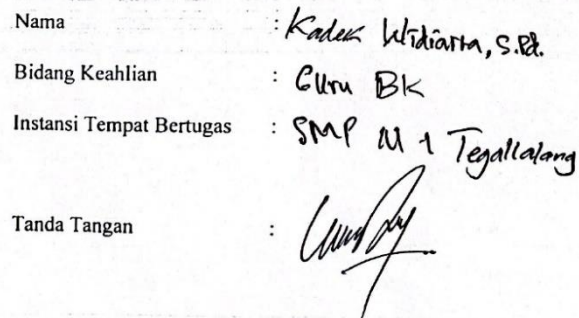 Nama : Kadek Widiarta, S.Pd.
Bidang Keahlian : Guru BK
Instansi Tempat Bertugas : SMP N 1 Tegallalang
Tanda Tangan :